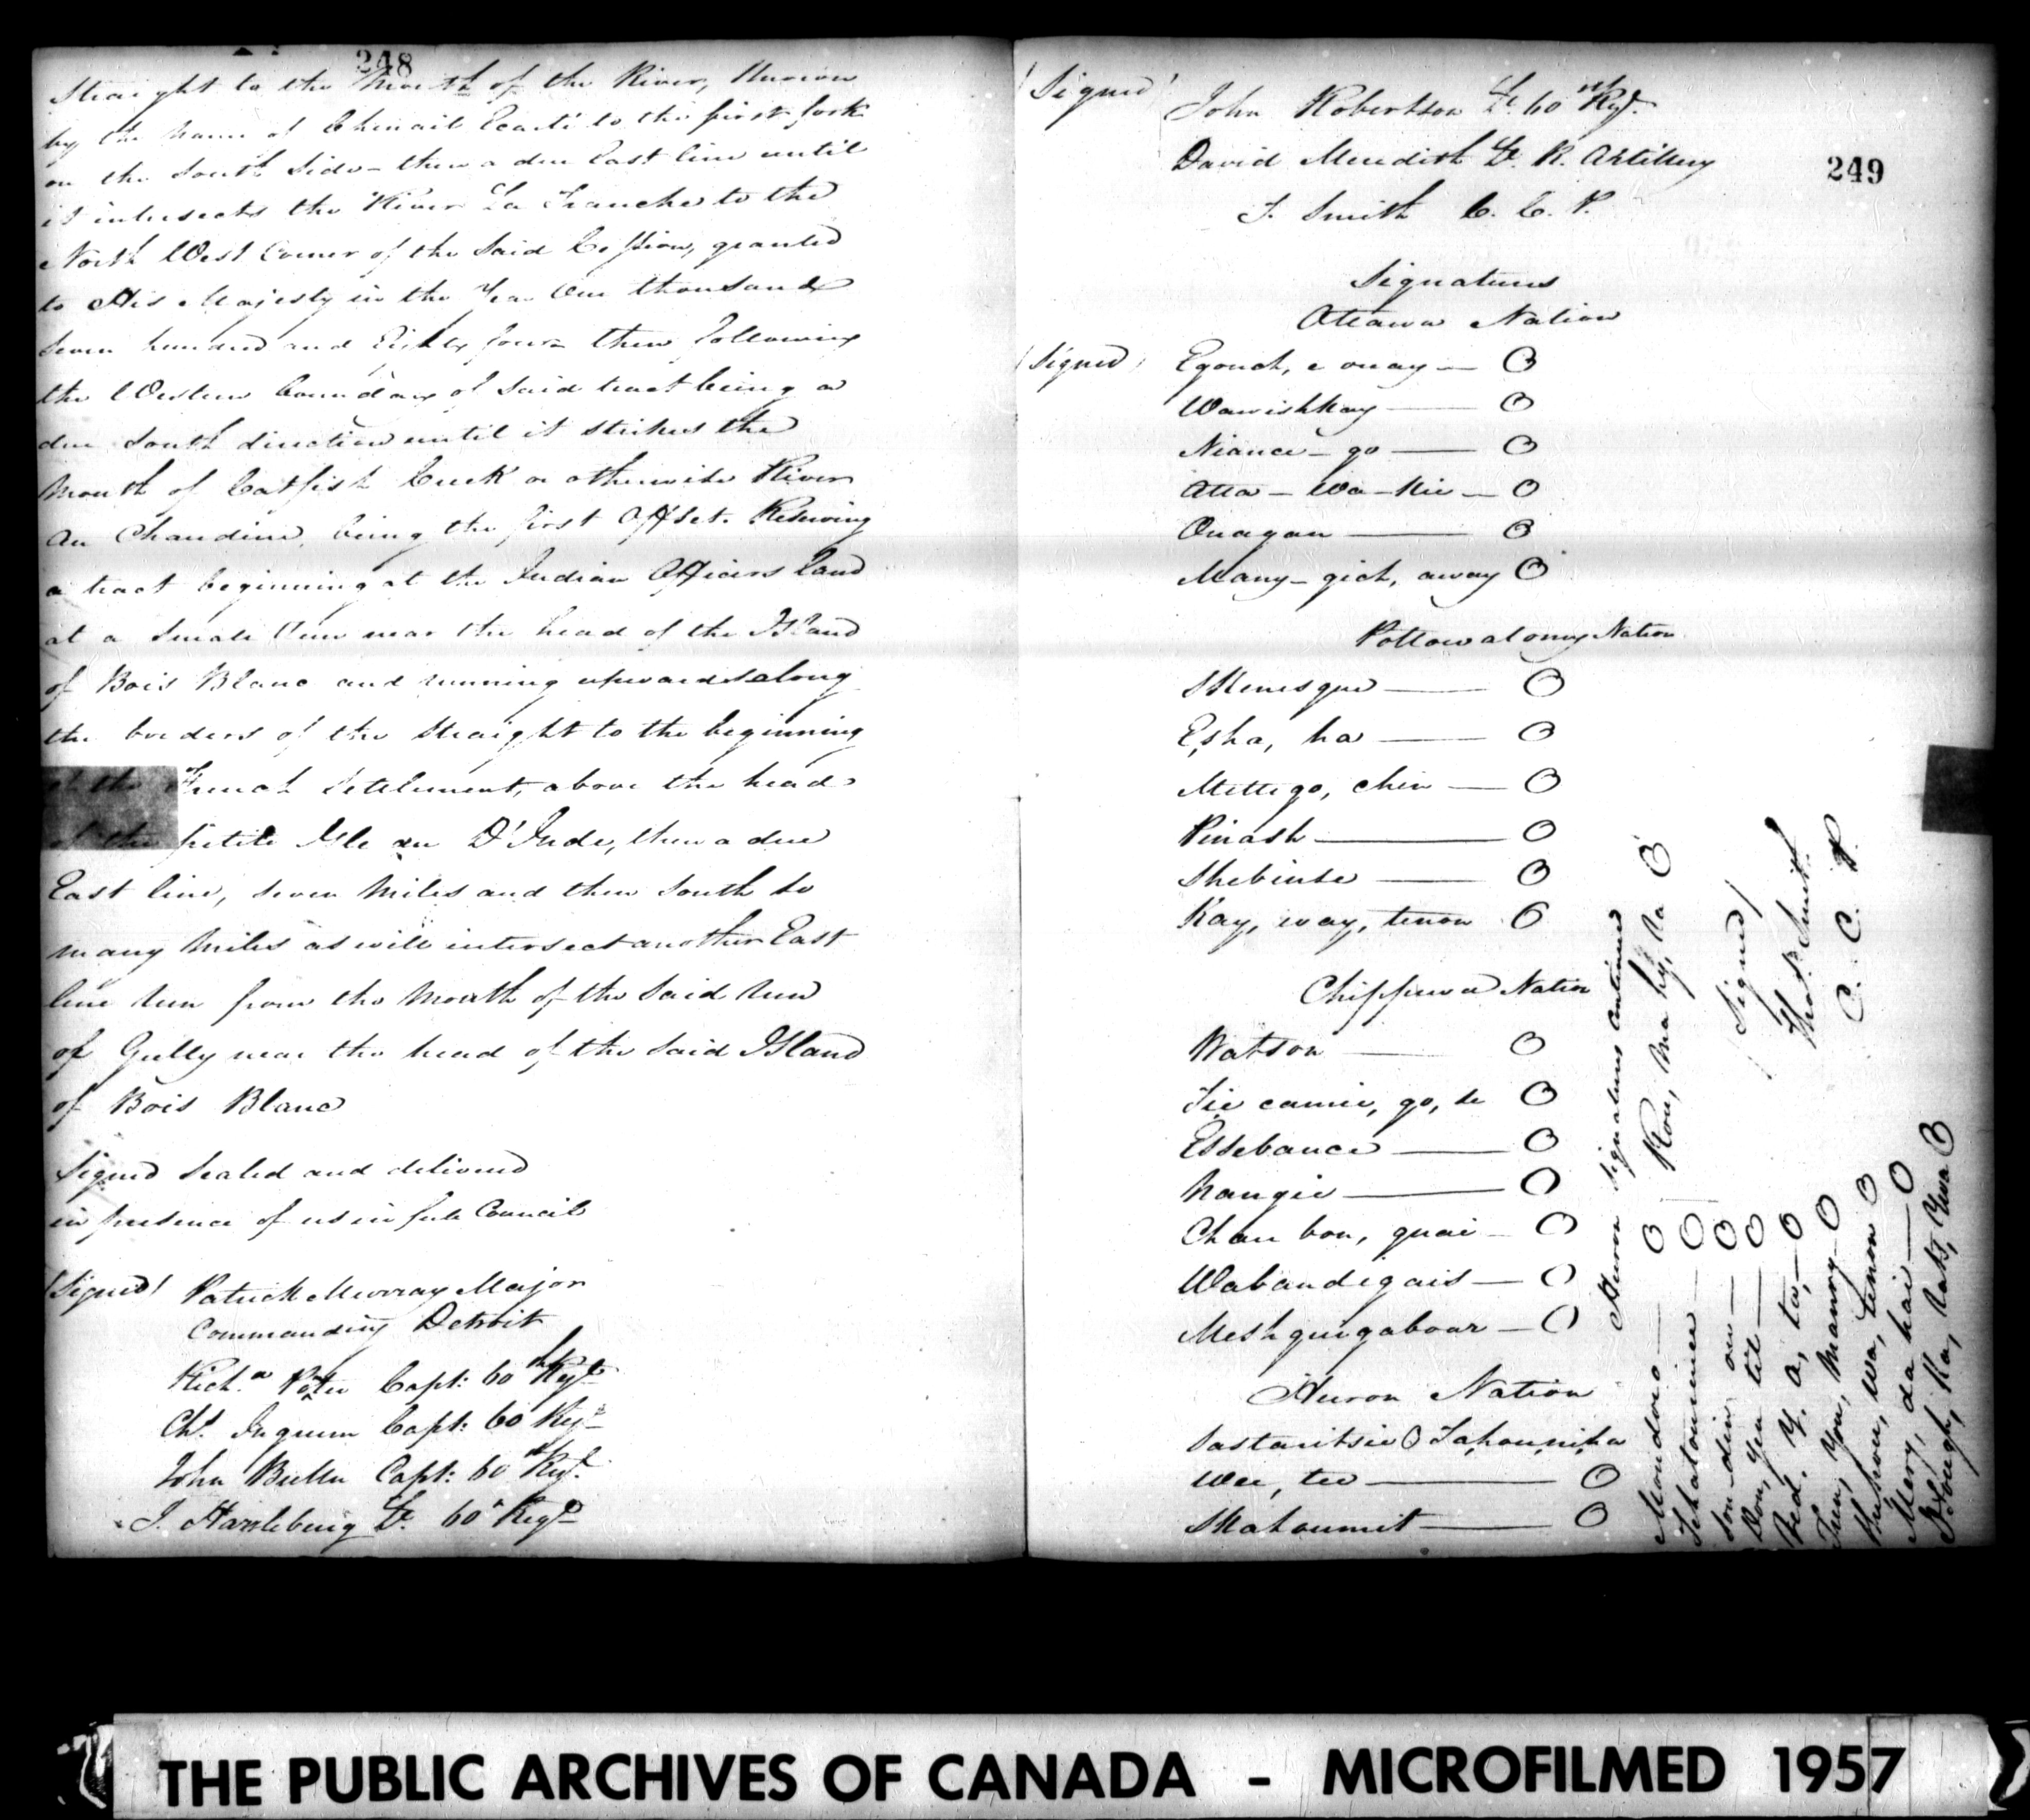 248
Straight to the Mouth of the River, known
by the Name of Chenail Ecarté to the first fork
on the South Side – then a due East line until
it intersects the River La Tranche to the
North West corner of the Said Cession, granted
to His Majesty in the Year One thousand
Seven hundred and Eighty four – then following
the Western boundary of Said tract being a
due South direction until it strikes the
Mouth of Catfish Creek or otherwise River
Au Chaudiere being the first Offset. Reserving
a tract beginning at the Indian Officers Land
at a Small Run near the head of the Island
of Bois Blanc and running upwards along
the borders of the Straight to the beginning
of the French Settlement, above the head
of the petite Isle au D'Inde, then a due
East line, Seven Miles and then South so
many Miles as will intersect another East
line run from the Mouth of the Said Run
of Gully near the head of the Said Island
of Bois Blanc
Signed Sealed and delivered
in presence of us in full Council
(Signed) Patrick Murray Major
Commanding Detroit
Capt: 60th Regt
Chs. Ingram Capt: 60 Regt
John Capt: 60th Regt.
Lt. 60th Regt
249
(Signed) John Robertson Lt. 60th Regt.
David Meredith Lt. R. Artillery
T. Smith C. C. P.
Signatures
Ottawa Nation
(Signed) Egouch, e ouay — O
Wawishkay — O
Niance – go — O
Atta – Wa – Kie — O
Ouagan — O
Many – gich, away O
Pottowatomy Nation
Skenesque — O
Esha, ha — O
Mettego, chin — O
Penash — O
Shebense — O
Kay, way, tenon O
Chippewa Nation
Watson — O
Tie cami, go, se O
Essebance — O
Nangie — O
Chau bon, quai – O
Wabandegais — O
Meshquigaboar — O
Huron Nation
Sastaritsie O Tahounika
Wee, tee — O
Skahoumit — O
Huron Signatures Continued
Mondoro — O
Tchatounince — O
Son – din – ou — O
Don, yen tit — O
Ted. Y. a, ta, — O
Tren, You, Manry – O
Rushou, Wa, tenon O
Mery, da hai — O
Dough, Ka, Rats, Ywa O
Rou, Ma hy, Ra O
(Signed)
Thos. Smith
C. C. P.
THE PUBLIC ARCHIVES OF CANADA - MICROFILMED 1957